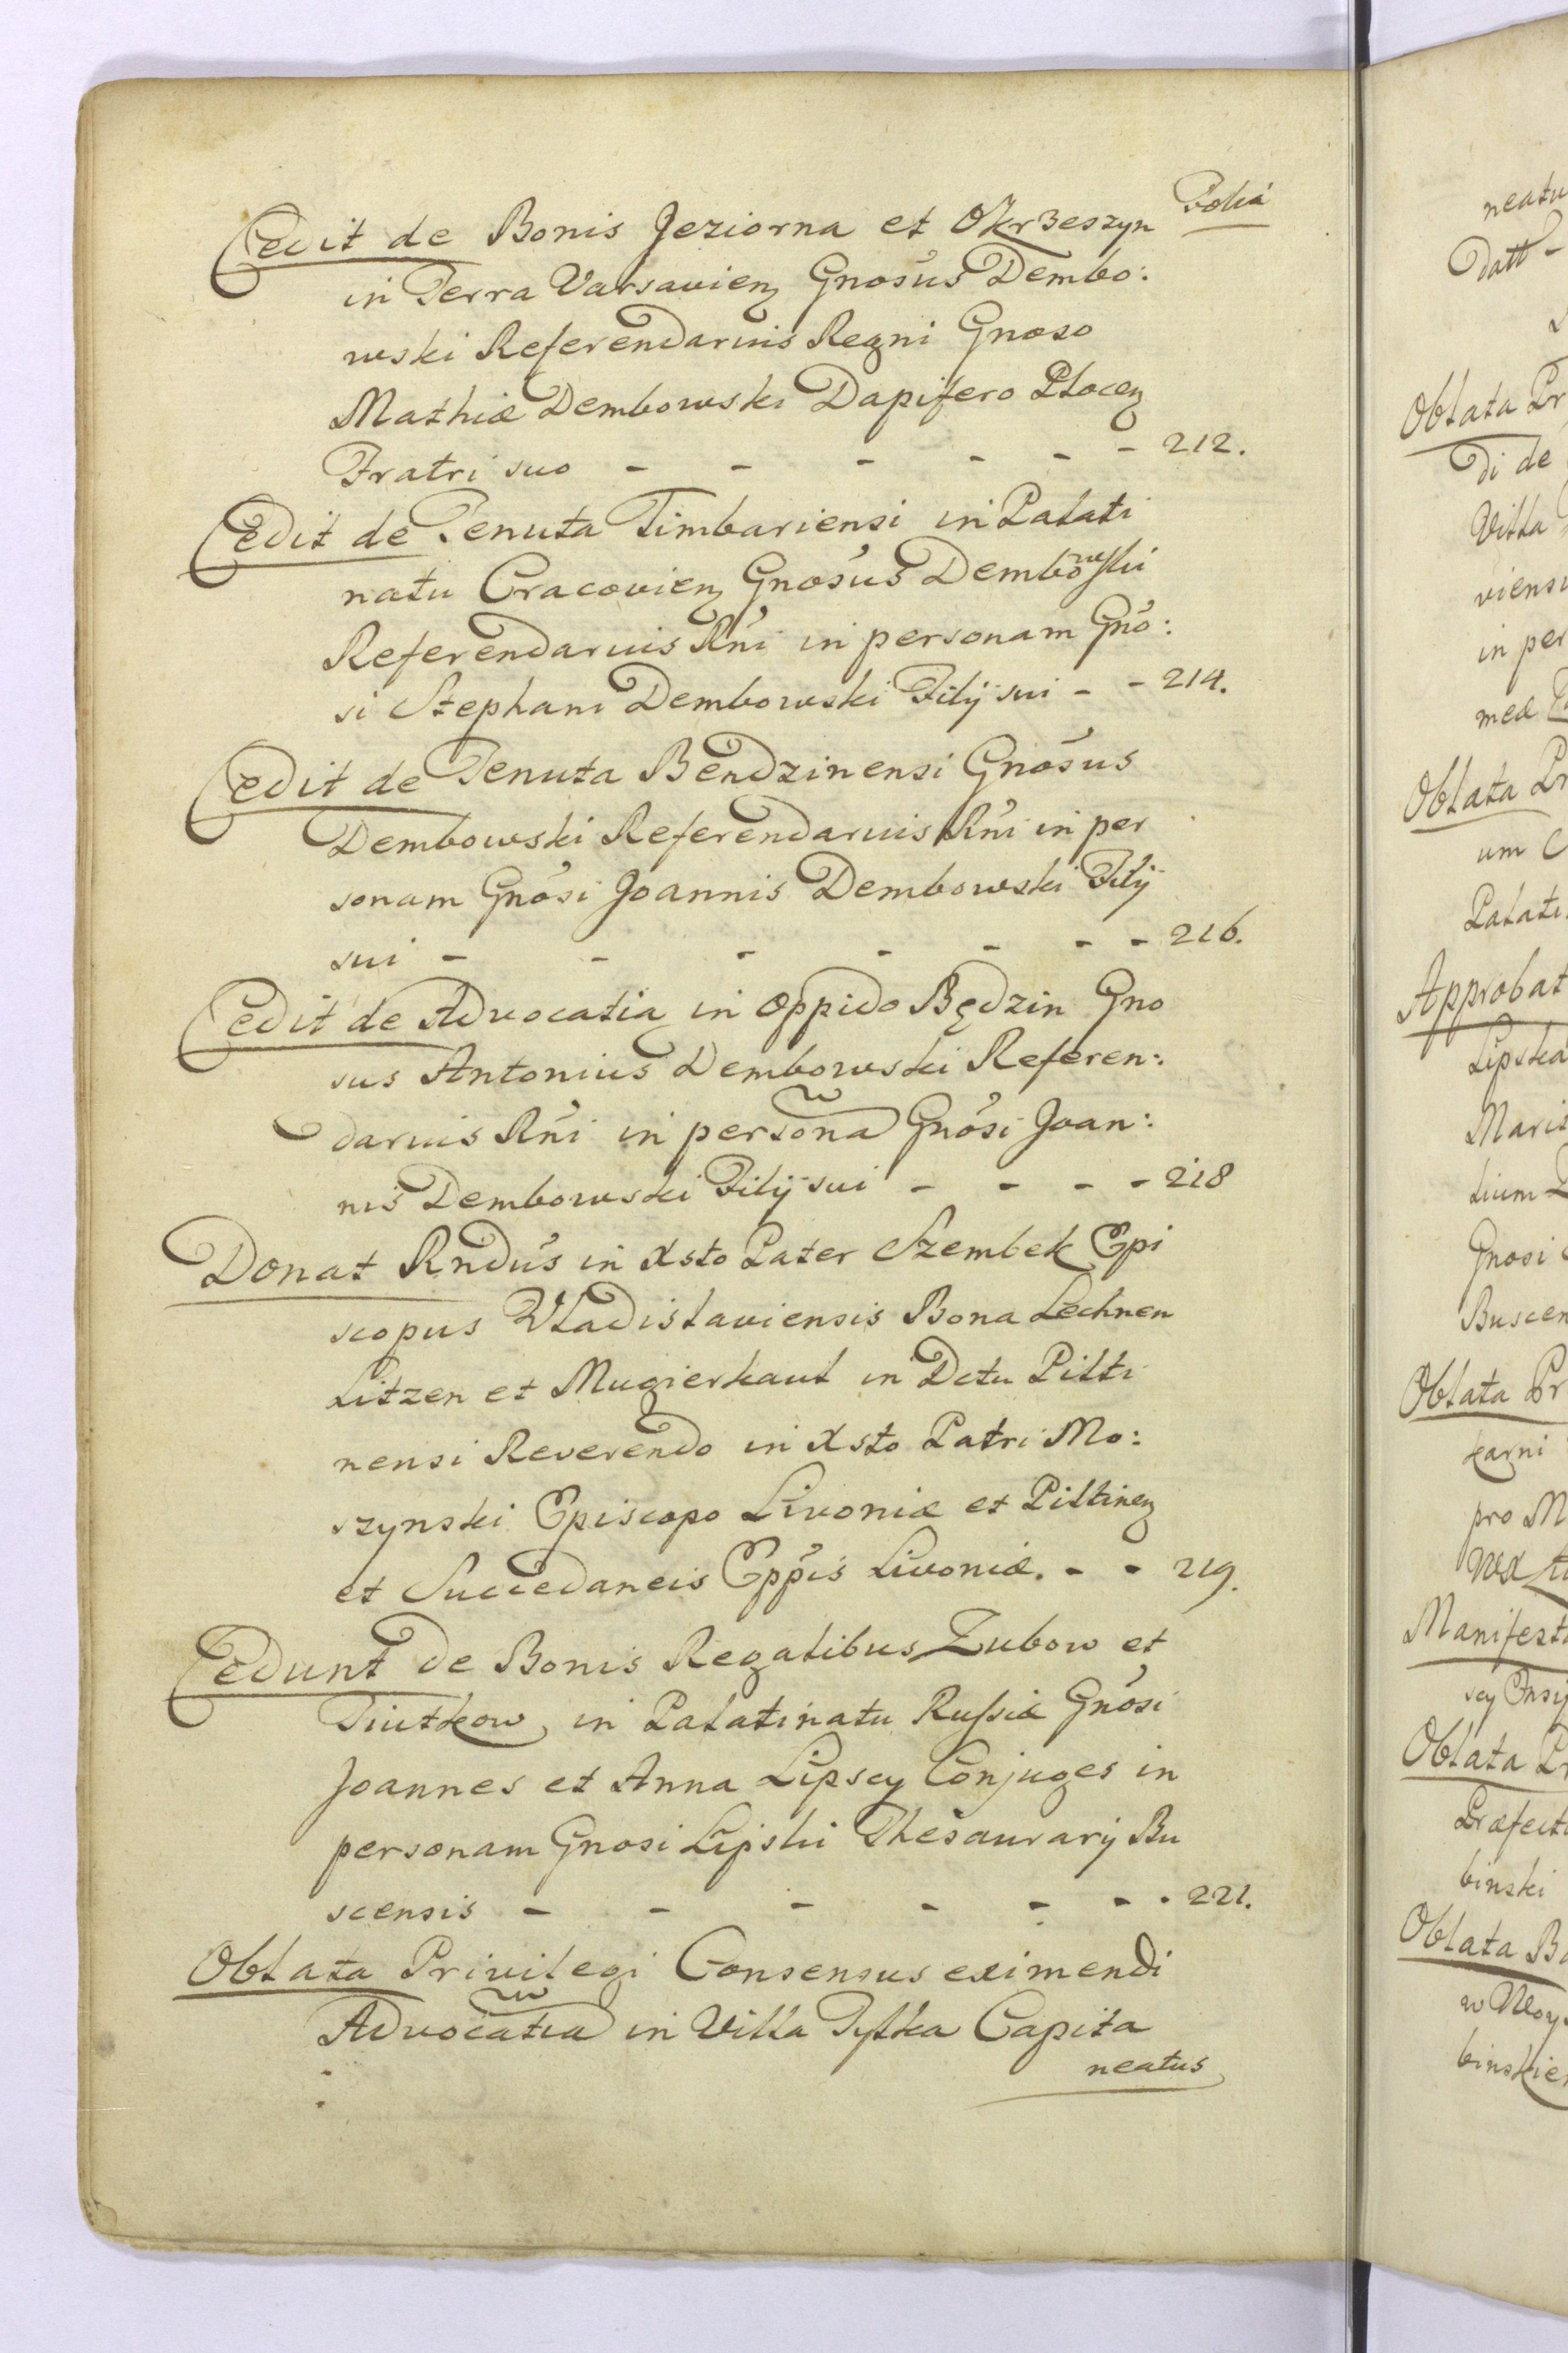 Folia
Cedit de Bonis Jeziorna et Okrzeszyn
in Terra Varsavienz Gnosus Dembo:
wski Referendarius Regni Gnoso
Mathiæ Dembowski Dapifero Plocenz
Fratri suo - - - - - - 212.
Cedit de Tenuta Timbariensi in Palati
natu Cracovienz Gnosus Dembowski
Referendarius Rni in personam Gno:
si Stephani Dembowski Filij sui - - 214.
Cedit de Tenuta Bendzinensi Gnosus
Dembowski Referendarius Rni in per
sonam Gnosi Joannis Dembowski Filij
sui - - - - - - - 216.
Cedit de Advocatia in Oppido Będzin Gno
sus Antonius Dembowski Referen:
darius Rni in persona Gnosi Joan:
nis Dembowski Filij sui - - - - 218
Donat Rndus in Xsto Pater Szembek Epi
scopus Vladislaviensis Bona Lechnen
Litzen et Mugierkaul in Dctu Pilti
nensi Reverendo in Xsto Patri Mo:
szynski Episcopo Livoniæ et Piltinenz
et Succedaneis Eppis Livoniæ. - - 219.
Cedunt de Bonis Regalibus Zubow et
Tiutkow in Palatinatu Russiæ Gnosi
Joannes et Anna Lipscy Conjuges in
personam Gnosi Lipski Thesaurarij Bu
scensis - - - - - - - 221.
Oblata Privilegi Consensus eximendi
Advocatia in Villa Tylka Capita
neatus
neatu
Datt -
Oblata Pr
di de
Villa
viensi
in per
med
Oblata Pr
um C
Palati
Approbat
Lipska
Marit
lium
Gnosi
Buscen
Oblata Pr
karni
pro M
Manifest
Oblata Pr
Præfect
binski
Oblata B
w Woy
binskie